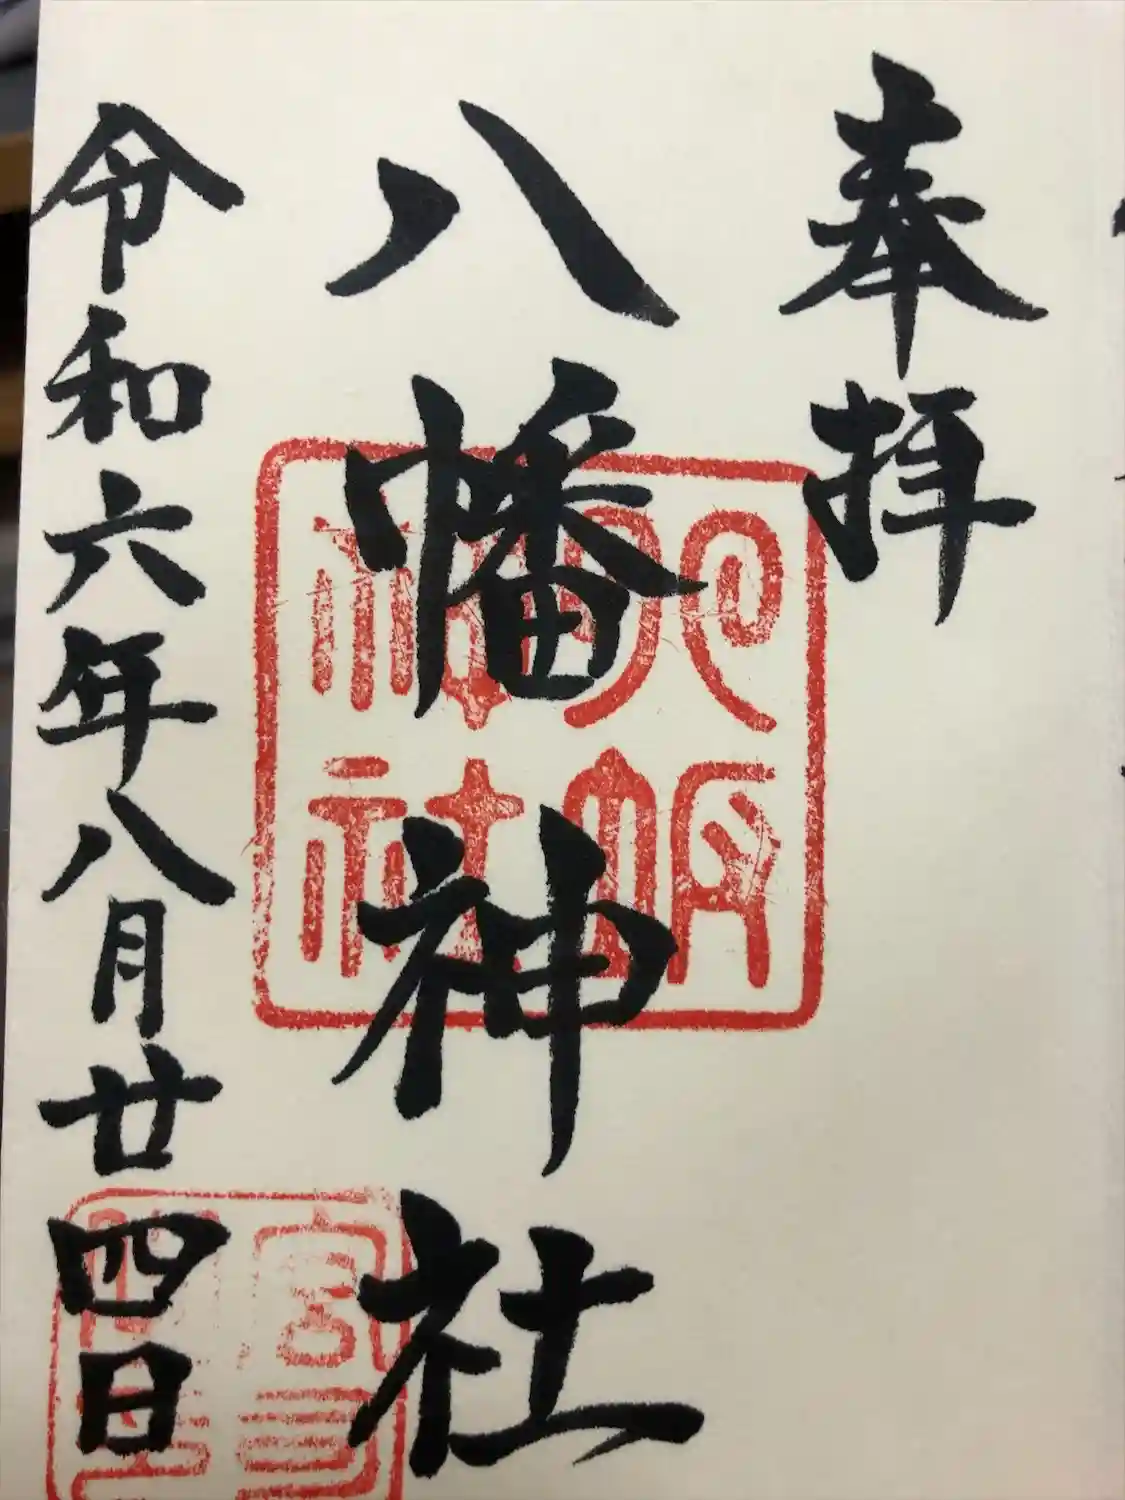 奉拝
八幡神社
令和六年八月廿四日
八幡
神社